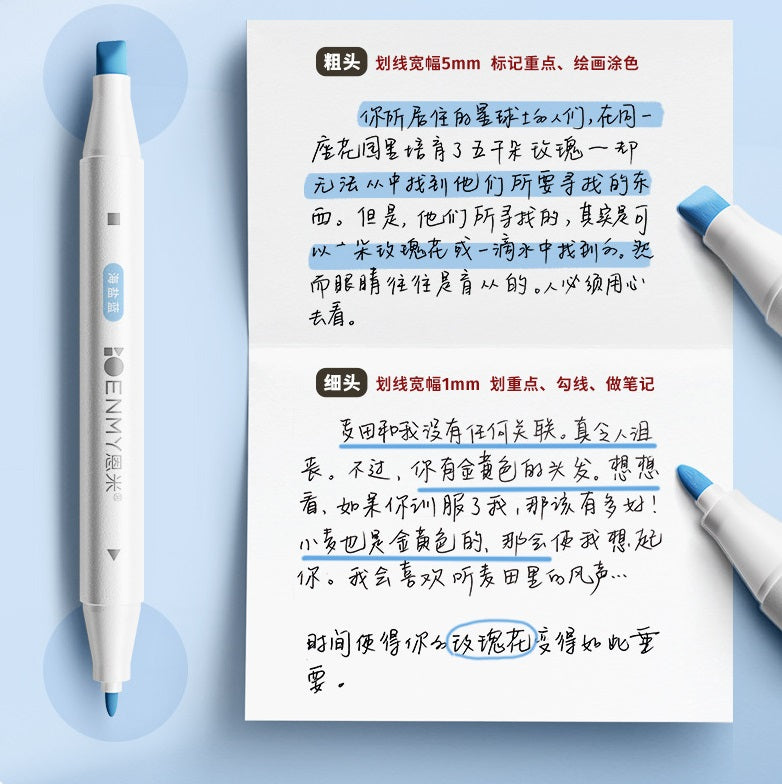 海盐蓝
ENMY恩米®
粗头 划线宽幅5mm 标记重点、绘画涂色
你所居住的星球上的人们,在同一
座花园里培育了五千朵玫瑰一却
无法从中找到他们所要寻找的东
西。但是,他们所寻找的,其实是可
以一朵玫瑰花或一滴水中找到的。然
而眼睛往往是盲从的。人必须用心
去看。
细头 划线宽幅1mm 划重点、勾线、做笔记
麦田和我没有任何关联。真令人沮
丧。不过,你有金黄色的头发。想想
看,如果你训服了我,那该有多好!
小麦也是金黄色的,那会使我想起
你。我会喜欢听麦田里的风声…
时间使得你的玫瑰花变得如此重
要。